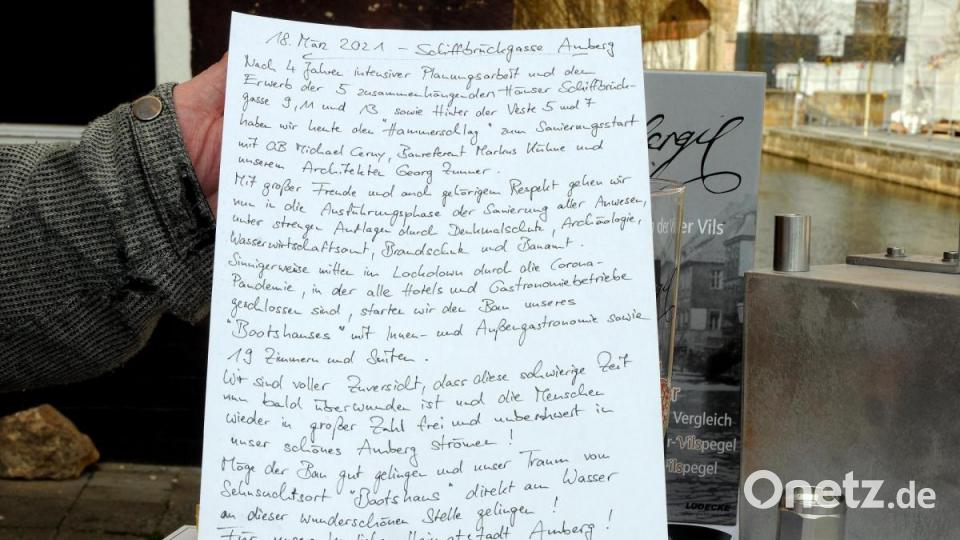 18. März 2021 – Schiffbrückgasse Amberg
Nach 4 Jahren intensiver Planungsarbeit und dem
Erwerb der 5 zusammenhängenden Häuser Schiffbrück-
gasse 9, 11 und 13 sowie Hinter der Veste 5 und 7
haben wir heute den "Hammerschlag" zum Sanierungsstart
mit OB Michael Cerny, Baureferent Markus Kühne und
unserem Architekten Georg Zunner.
Mit großer Freude und auch gehörigem Respekt gehen wir
nun in die Ausführungsphase der Sanierung aller Anwesen,
unter strengen Auflagen durch Denkmalschutz, Archäologie,
Wasserwirtschaftsamt, Brandschutz und Bauamt.
Sinnigerweise mitten im Lockdown durch die Corona-
Pandemie, in der alle Hotels und Gastronomiebetriebe
geschlossen sind, starten wir den Bau unseres
"Bootshauses" mit Innen- und Außengastronomie sowie
19 Zimmern und Suiten.
Wir sind voller Zuversicht, dass diese schwierige Zeit
nun bald überwunden ist und die Menschen
wieder in großer Zahl frei und unbeschwert in
unser schönes Amberg strömen!
Möge der Bau gut gelingen und unser Traum vom
Sehnsuchtsort "Bootshaus" direkt am Wasser
an dieser wunderschönen Stelle gelingen!
Für unsere Heimatstadt Amberg!
der Vils
Vergleich
r-Vilspegel
Vilspegel
LÜDECKE
Onetz.de